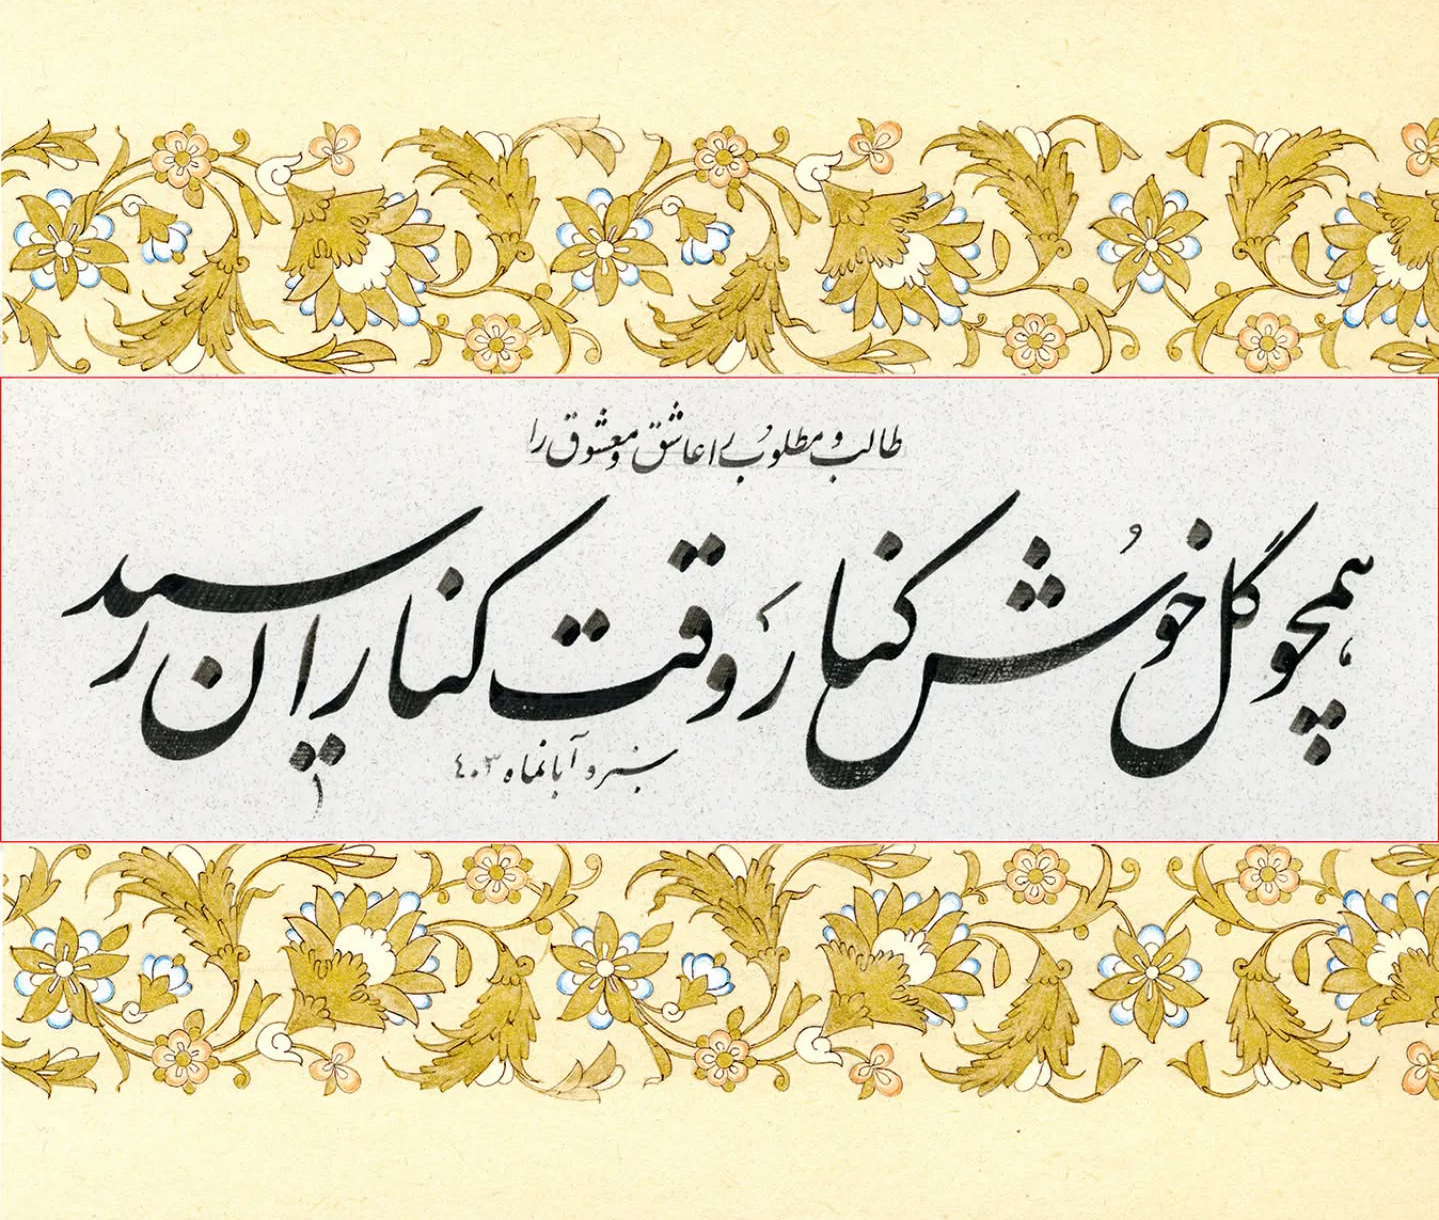 طالب و مطلوب را عاشق و معشوق را
همچو گل خوش کنار وقت کنار است رسید
سبزرو آبانماه ۴۰۳